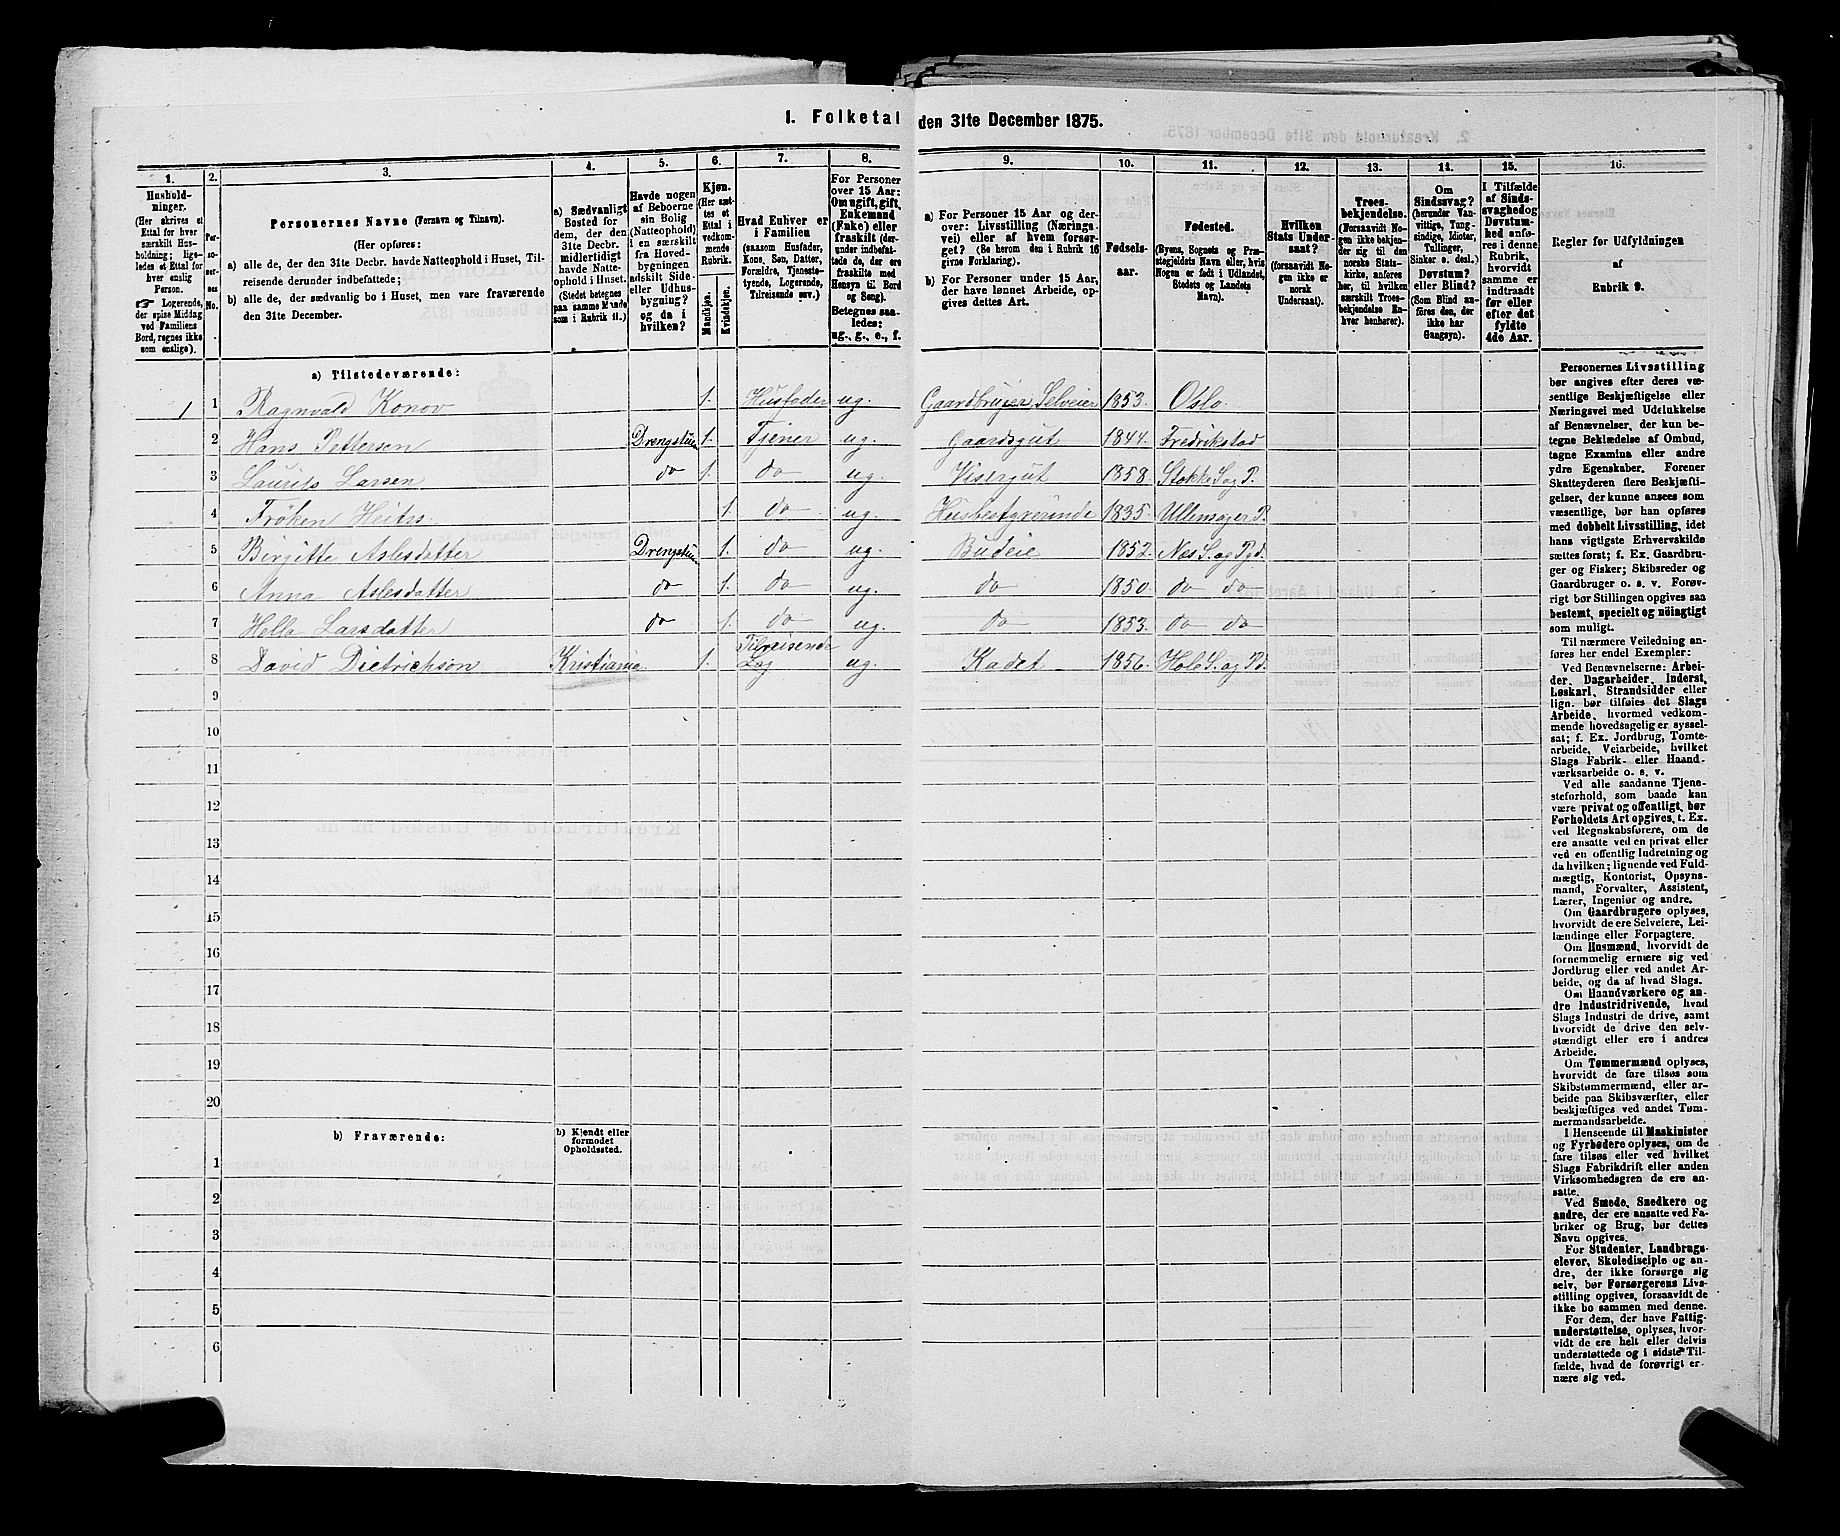 1. Folketal den 31te December 1875.
1. 2. 3. 4. 5. 6. 7. 8. 9. 10. 11. 12. 13. 14. 15. 16.
Hushold-
ninger.
(Her skrives et
Ettal for hver
særskilt Hus-
holdning; lige-
ledes et Ettal for
hver enslig
Person.
☞ Logerende,
der spise Middag
ved Familiens
Bord, regnes ikke
som enslige).
Per-
so-
ner-
nes
No.
Personernes Navne (Fornavn og Tilnavn).
(Her opføres:
a) alle de, der den 31te Decbr. havde Natteophold i Huset, Til-
reisende derunder indbefattede;
b) alle de, der sædvanlig bo i Huset, men vare fraværende
den 31te December.
a) Sædvanligt
Bosted for
dem, der den
31te Decbr.
midlertidigt
havde Natte-
ophold i Huset.
(Stedet betegnes
paa samme Maade
som i Rubrik 11.)
Havde nogen
af Beboerne
sin Bolig
(Natteophold)
i en særskilt
fra Hoved-
bygningen
adskilt Side-
eller Udhus-
bygning?
og da i
hvilken?
Kjøn.
(Her sæt-
tes et
Ettal i
vedkom-
mende
Rubrik.
Mandkjøn.
Kvindekjøn.
Hvad Enhver er
i Familien
(saasom Husfader,
Kone, Søn, Datter,
Forældre, Tjeneste-
tyende, Logerende,
Tilreisende osv.)
For Personer
over 15 Aar:
Om ugift, gift,
Enkemand
(Enke) eller
fraskilt (der-
under indbefat-
tede de, der ere
fraskilte med
Hensyn til Bord
og Seng).
Betegnes saa-
ledes:
ug., g., e., f.
a) For Personer 15 Aar og der-
over: Livsstilling (Nærings-
vei) eller af hvem forsør-
get? (Se herom den i Rubrik 16
givne Forklaring).
b) For Personer under 15 Aar,
der have lønnet Arbeide, op-
gives dettes Art.
Fødsels-
aar.
Fødested.
(Byens, Sognets og Præ-
stegjeldets Navn eller, hvis
Nogen er født i Udlandet,
Stedets og Landets
Navn).
Hvilken
Stats Under-
saat?
(forsaavidt No-
gen ikke er
norsk
Undersaat).
Troes-
bekjendelse.
(Forsaavidt No-
gen ikke bekjen-
der sig til den
norske Stats-
kirke, anføres
her, til hvilken
særskilt Troes-
bekjendelse En-
hver henhører).
Om
Sindssvag?
(herunder Van-
vittige, Tung-
sindige, Idioter,
Tullinger,
Sinker o. desl.)
Døvstum?
eller Blind?
(Som Blind an-
føres den, der
ikke har
Gangsyn).
I Tilfælde
af Sinds-
svaghed og
Døvstum-
hed anfø-
res i denne
Rubrik,
hvorvidt
samme er
indtraadt
før eller
efter det
fyldte
4de Aar.
Regler for Udfyldningen
af
Rubrik 9.
a) Tilstedeværende:
1 1 Ragnvald Konov 1. Husfader ug. Gaardbruger Selveier 1853. Oslo.
2 Hans Pettersen Drengstue 1. Tjener ug. Gaardsgut 1844. Fredrikstad
3 Laurits Larsen do 1. do ug. Visergut 1858. Stokke S. og P.
4 Frøken 1. do ug. Husbestyrerinde 1835. Ullensager P.
5 Birgitte Aslesdatter Drengstue 1. do ug. Budeie 1852. Nes S. og Pgd.
6 Anna Aslesdatter do 1. do ug. do 1850. do do
7 Hella Larsdatter do 1. do ug. do 1853. do do
8 David Dietrichson Kristiania. 1. Tilreisende ug. Kadet 1856. Hole S. og Pd.
9
10
11
12
13
14
15
16
17
18
19
20
b) Fraværende:
b) Kjendt eller
formodet
Opholdssted.
1
2
3
4
5
6
Personernes Livsstilling
bør angives efter deres væ-
sentlige Beskjæftigelse eller
Næringsvei med Udelukkelse
af Benævnelser, der kun be-
tegne Beklædelse af Ombud,
tagne Examina eller andre
ydre Egenskaber. Forener
Skatteyderen flere Beskjæfti-
gelser, der kunne ansees som
væsentlige, bør han opføres
med dobbelt Livsstilling, idet
hans vigtigste Erhvervskilde
sættes først; f. Ex. Gaardbru-
ger og Fisker; Skibsreder og
Gaardbruger o. s. v. Forøv-
rigt bør Stillingen opgives saa
bestemt, specielt og nøiagtigt
som muligt.
Til nærmere Veiledning an-
føres her endel Exempler:
Ved Benævnelserne: Arbei-
der, Dagarbeider, Inderst,
Løskarl, Strandsidder eller
lign. bør tilføies det Slags
Arbeide, hvormed vedkom-
mende hovedsagelig er syssel-
sat; f. Ex. Jordbrug, Tomte-
arbeide, Veiarbeide, hvilket
Slags Fabrik- eller Haand-
værksarbeide o. s. v.
Ved alle saadanne Tjene-
steforhold, som baade kan
være privat og offentligt, bør
Forholdets Art opgives, t. Ex.
ved Regnskabsførere, om de
ere ansatte ved en privat eller
ved en offentlig Indretning og
da hvilken; lignende ved Fuld-
mægtig, Kontorist, Opsyns-
mand, Forvalter, Assistent,
Lærer, Ingeniør og andre.
Om Gaardbrugere oplyses,
hvorvidt de ere Selveiere, Lei-
lændinge eller Forpagtere.
Om Husmænd, hvorvidt de
fornemmelig ernære sig ved
Jordbrug eller ved andet Ar-
beide, og da af hvad Slags.
Om Haandværkere og an-
dre Industridrivende, hvad
Slags Industri de drive, samt
hvorvidt de drive den selv-
stændigt eller ere i andres
Arbeide.
Om Tømmermænd oplyses,
hvorvidt de fare tilsøs som
Skibstømmermænd, eller ar-
beide paa Skibsværfter, eller
beskjæftiges ved andet Tøm-
mermandsarbeide.
I Henseende til Maskinister
og Fyrbødere oplyses, om de
fare tilsøs eller ved hvilket
Slags Fabrikdrift eller anden
Virksomhedsgren de ere an-
satte.
Ved Smede, Snedkere og
andre, der ere ansatte ved Fa-
briker og Brug, bør dettes
Navn opgives.
For Studenter, Landbrugs-
elever, Skoledisciple og an-
dre, der ikke forsørge sig
selv, bør Forsørgerens Livs-
stilling opgives, forsaavidt de
ikke bo sammen med denne.
For dem, der have Fattig-
understøttelse, oplyses, hvor-
vidt de ere helt eller delvis
understøttede og i sidste Til-
fælde, hvad de forøvrigt er-
nære sig ved.